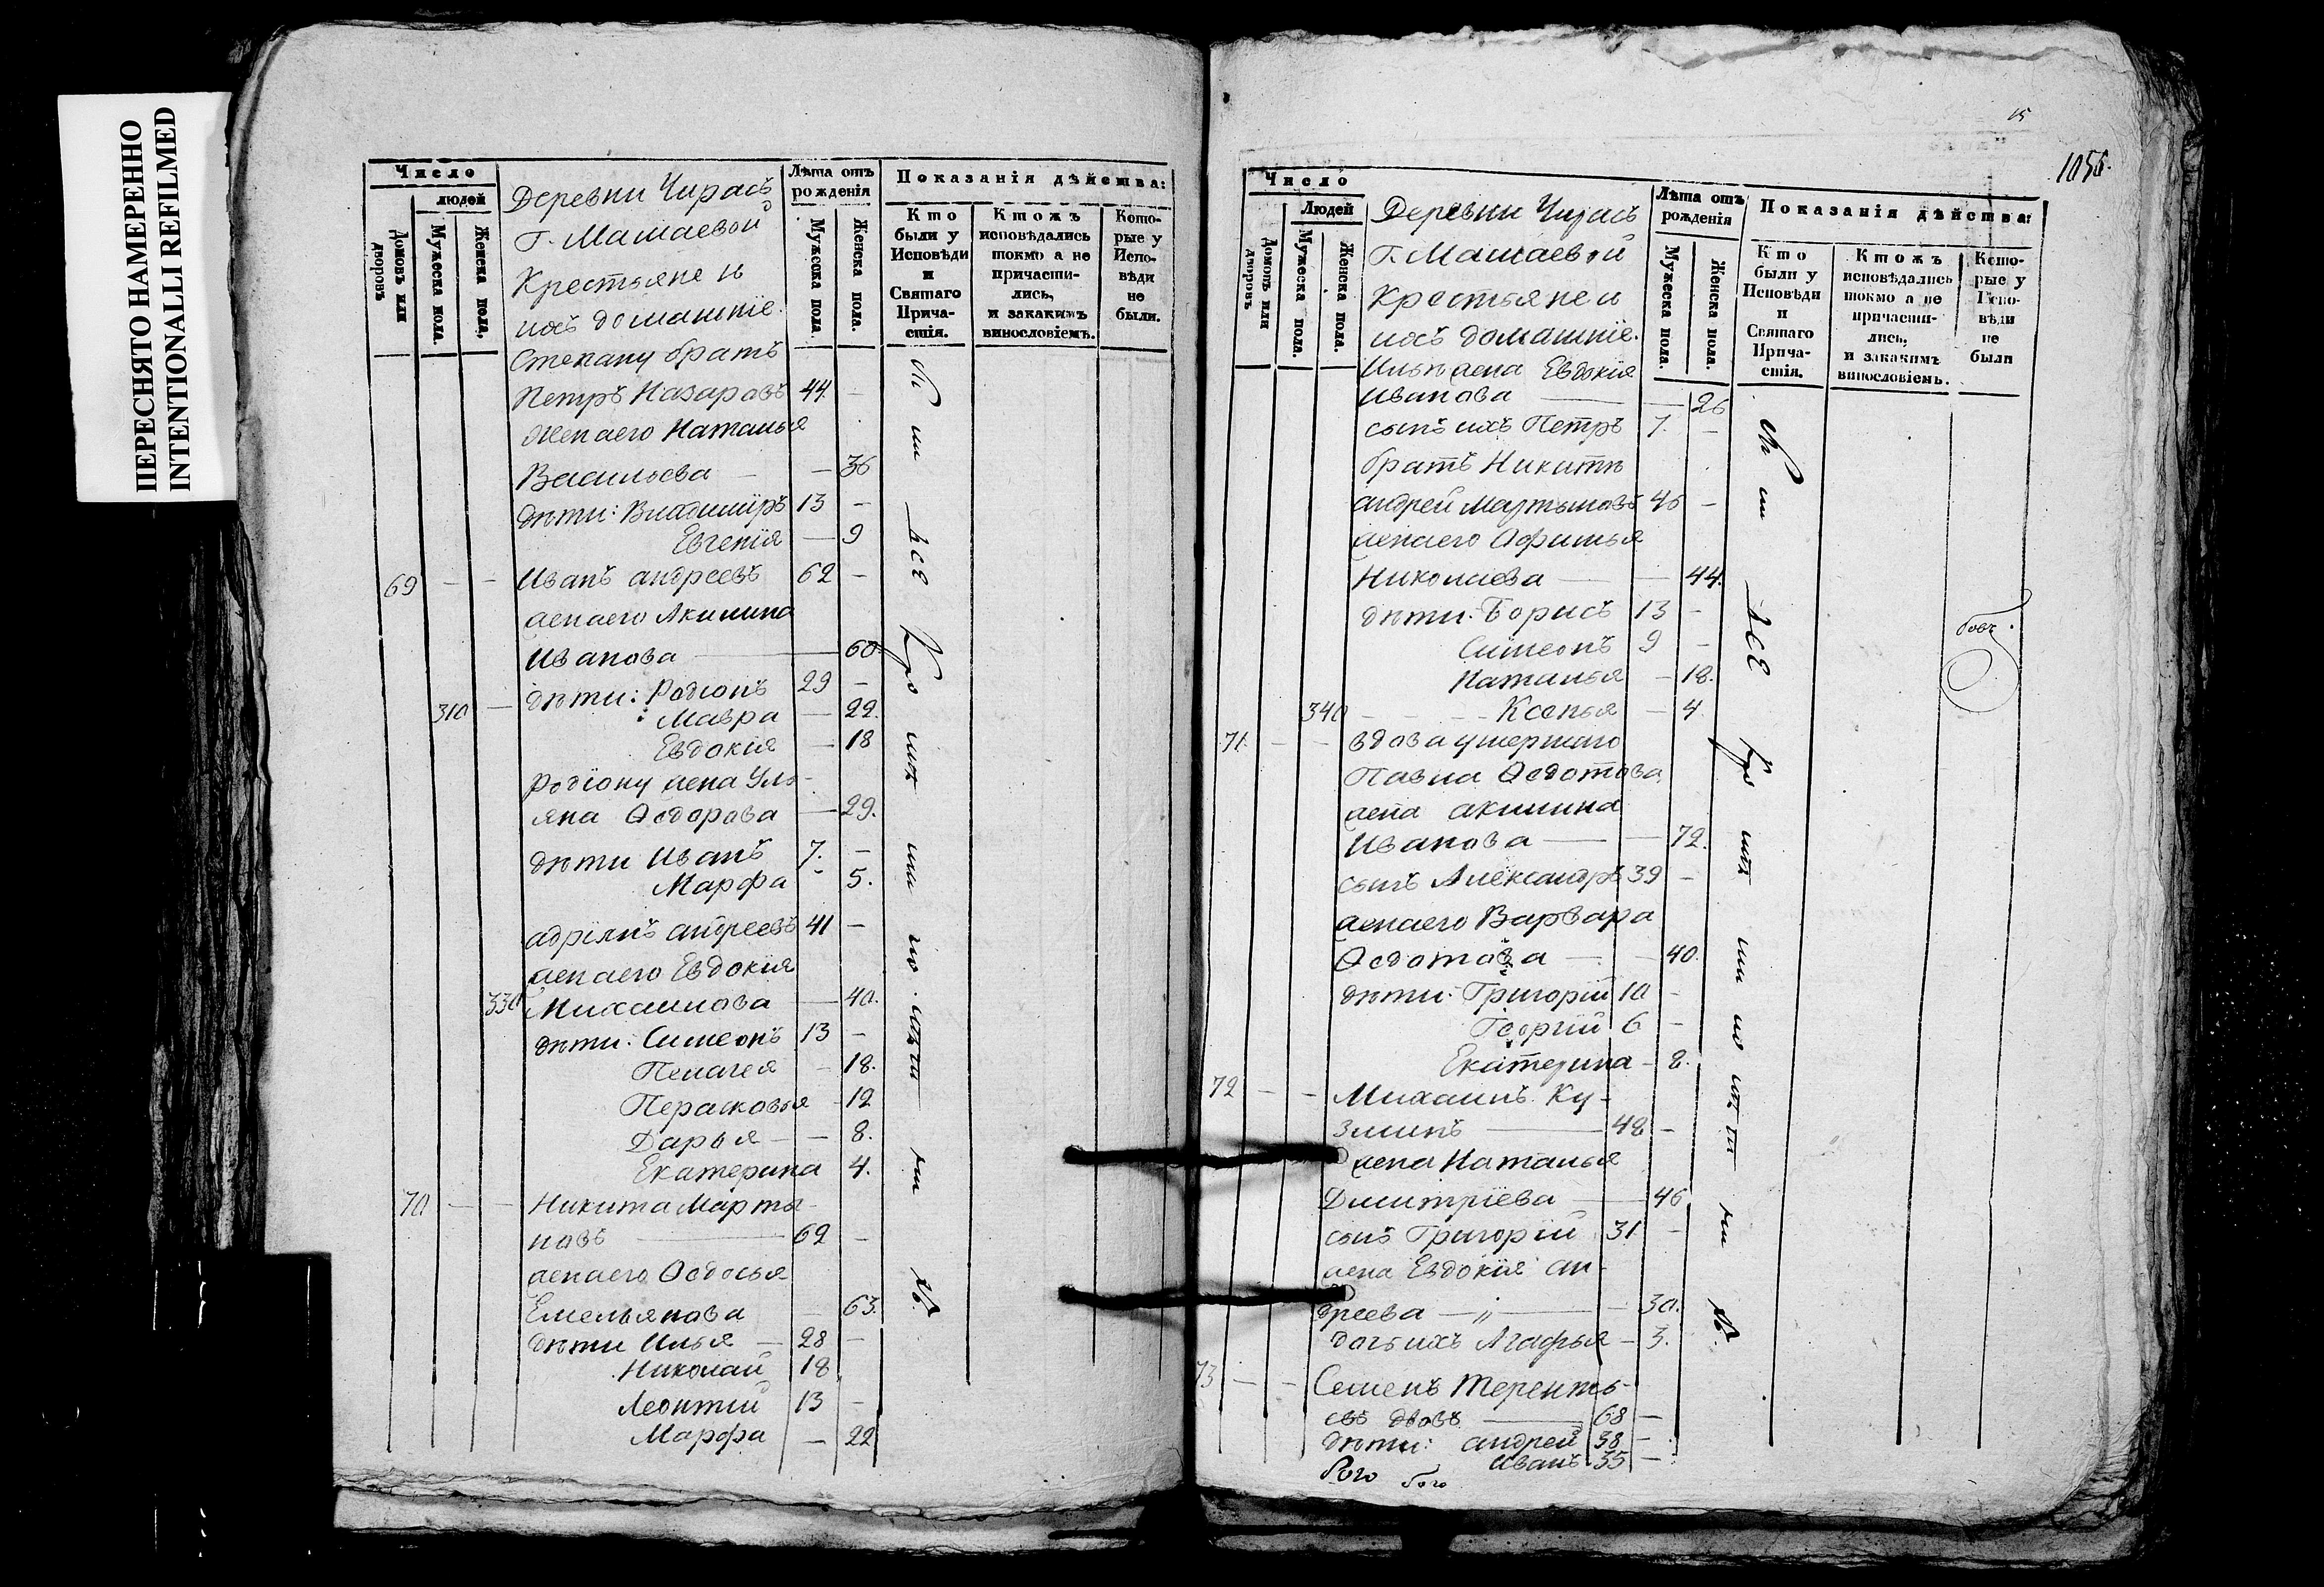 ПЕРЕСНЯТО НАМЕРЕННО
INTENTIONALLI REFILMED
Число
людей
Домовъ или дворовъ
Мужеска пола.
Женска пола,
Деревни Чирасъ
Г. Машаевой
Крестьяне и
ихъ домашніе.
Лѣта отъ рожденія
Мужеска пола.
Женска пола.
Показанія дѣйства:
Кто были у Исповѣди и Святаго Прича-стія.
Ктожъ исповѣдались токмо а не причасти-лись, и закакимъ винословіемъ.
Кото-рые у Испо-вѣди не были.
Степану братъ
Петръ Назаровъ 44. —
жена его Наталья
Васильева — 36
дѣти: Владиміръ 13 —
Евгенія — 9
69 — — Иванъ андреевъ 62 —
жена его Акилина
Иванова — 60
дѣти: Родіонъ 29 —
310 — Мавра — 22.
Евдокія — 18
Родіону жена Улья-
яна Ѳедорова — 29.
дѣти Иванъ 7. —
Марфа - 5.
адріянъ андреевъ 41 —
жена его Евдокія
330 Михайлова — 40.
дѣти: Симеонъ 13 —
Пелагея - 18.
Перасковья - 12
Дарья — — 8.
Екатерина 4.
70 — — Никита Марты-
новъ — 62 —
жена его Ѳедосья
Емельянова — 63.
дѣти Илья — 28 —
Николай 18
Леонтій 13 —
Марфа — 22
15
1056.
Число
Людей
Домовъ или дворовъ
Мужеска пола.
Женска пола.
Деревни Чирасъ
Г. Машаевой
Крестьяне и
ихъ домашніе.
Лѣта отъ рожденія
Мужеска пола.
Женска пола.
Показанія дѣйства:
Кто были у Исповѣди и Святаго Прича-стія.
Ктожъ исповѣдались токмо а не причасти-лись, и закакимъ винословіемъ.
Кото-рые у Испо-вѣди не были
Ильи жена Евдокія
Иванова — 26
сынъ ихъ Петръ 7. —
братъ Никиты
андрей Мартыновъ 46 —
жена его Афимья
Николаева — 44.
дѣти: Борисъ 13 -
Симеонъ 9 -
Наталья - 18.
340 - - - Ксенья - 4
71. — — вдова умершаго
Павла Ѳедотова
жена акилина
Иванова — 72.
сынъ Александръ 39 -
жена его Варвара
Ѳедотова — 40.
дѣти: Григорій 10 -
Георгій 6 -
Екатерина - 8.
72 — — Михаилъ Ку-
зминъ — 48 -
жена Наталья
Димитріева — 46
сынъ Григорій 31 -
жена Евдокія ан-
дреева — 30.
дочь ихъ Агафья - 3.
73 — — Семенъ Теренть-
евъ вдовъ — 68 —
дѣти: андрей 38 —
Иванъ 35 —